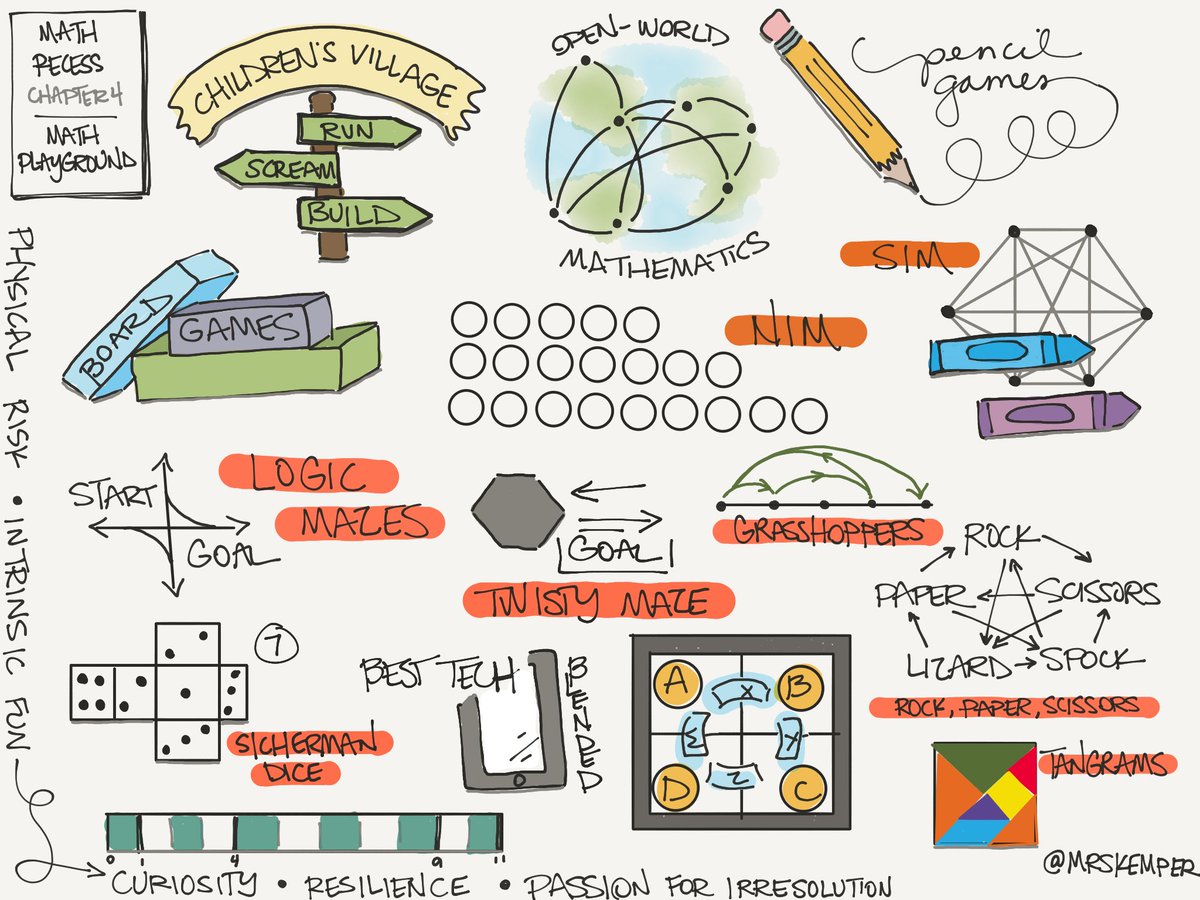 MATH
RECESS
CHAPTER 4
MATH
PLAYGROUND
CHILDREN'S VILLAGE
RUN
SCREAM
BUILD
OPEN-WORLD
MATHEMATICS
pencil
games
SIM
BOARD
GAMES
NIM
PHYSICAL RISK • INTRINSIC FUN
START
GOAL
LOGIC
MAZES
GOAL
TWISTY MAZE
GRASSHOPPERS
ROCK
PAPER
SCISSORS
LIZARD
SPOCK
ROCK, PAPER, SCISSORS
7
SICHERMAN
DICE
BEST TECH
BLENDED
A
X
B
M
K
D
Z
C
TANGRAMS
0 1 4 9 11
CURIOSITY • RESILIENCE • PASSION FOR IRRESOLUTION
@MRSKEMPER